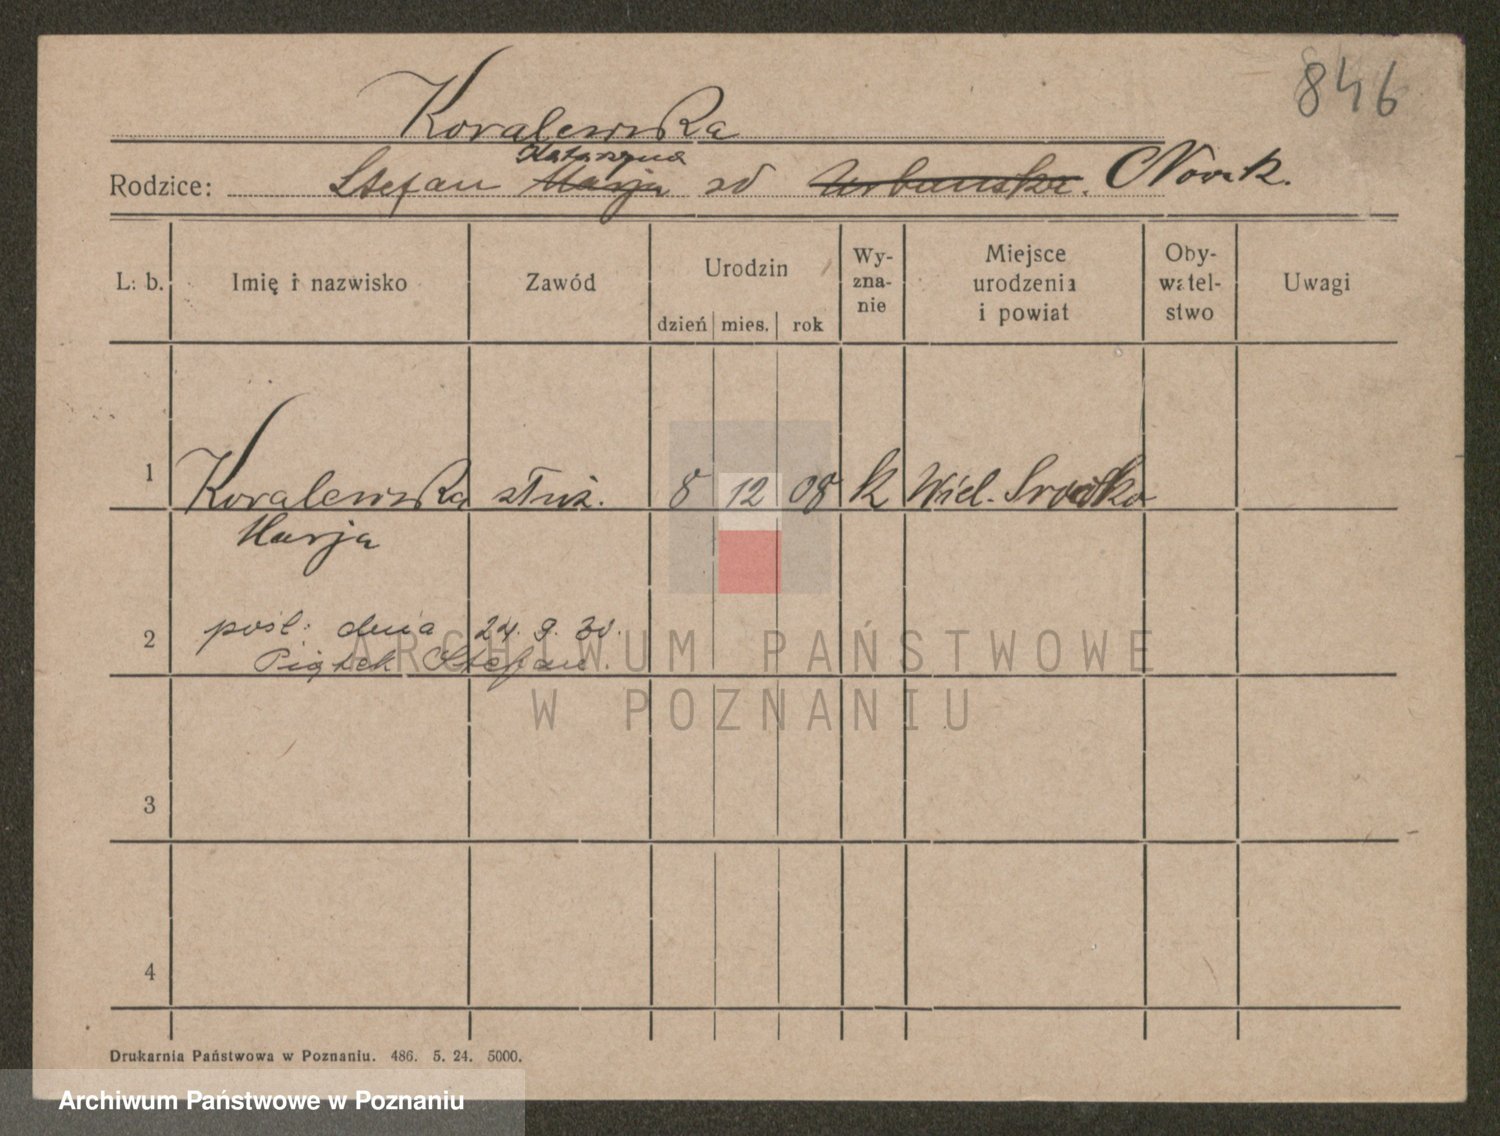 846
Kowalewska
Katarzyna
Rodzice: Stefan Marja zd Urbańska. Nowak.
L. b. Imię i nazwisko Zawód Urodzin dzień mies. rok Wy-zna-nie Miejsce urodzenia i powiat Oby-watel-stwo Uwagi
1 Kowalewska służ. 8 12 08 k Wiel.
Marja
2 pośl. dnia 24. 9. 30.
Piątek Stefan.
ARCHIWUM PAŃSTWOWE
W POZNANIU
3
4
Drukarnia Państwowa w Poznaniu. 486. 5. 24. 5000.
Archiwum Państwowe w Poznaniu